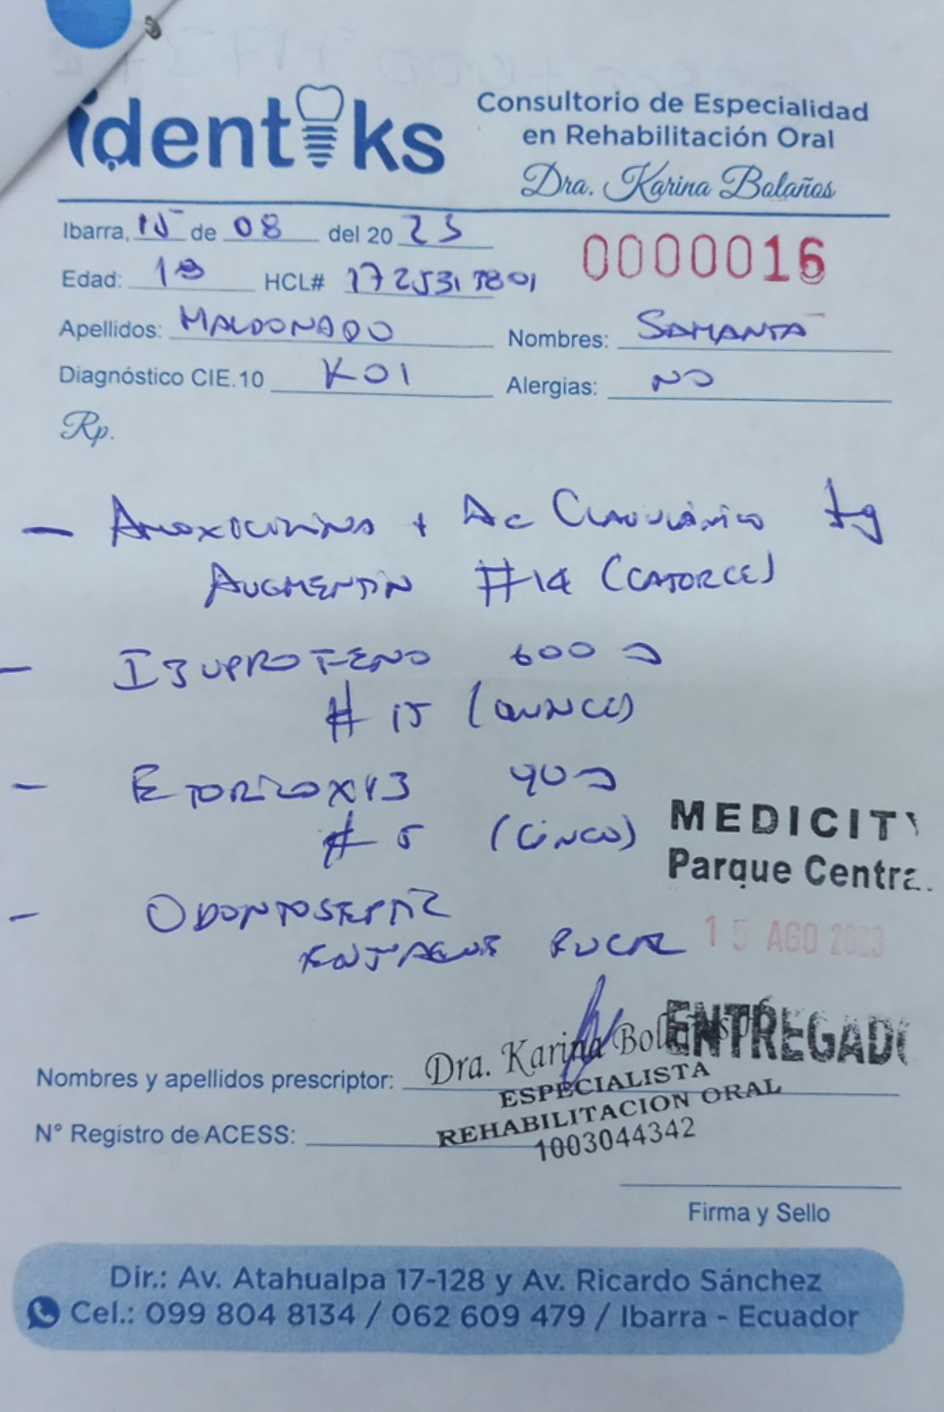 identiks
Consultorio de Especialidad
en Rehabilitación Oral
Dra. Karina Bolaños
Ibarra, 15 de 08 del 20 23
0000016
Edad: 18 HCL#
Apellidos: MALDONADO
Nombres: SAMANTA
Diagnóstico CIE.10 K01
Alergias: NO
Rp.
- AMOXICILINA + AC CLAVULÁNICO 1g
AUGMENTIN #14 (CATORCE)
- IBUPROFENO 600
# 15 (QUINCE)
- ETORICOXIB 90
# 5 (CINCO)
MEDICITY
Parque Central
- ODONTOSEPTIC
ENJUAGUE BUCAL
15 AGO 2023
ENTREGADO
Dra. Karina Bolaños
Nombres y apellidos prescriptor:
ESPECIALISTA
REHABILITACION ORAL
N° Registro de ACESS:
1003044342
Firma y Sello
Dir.: Av. Atahualpa 17-128 y Av. Ricardo Sánchez
Cel.: 099 804 8134 / 062 609 479 / Ibarra - Ecuador